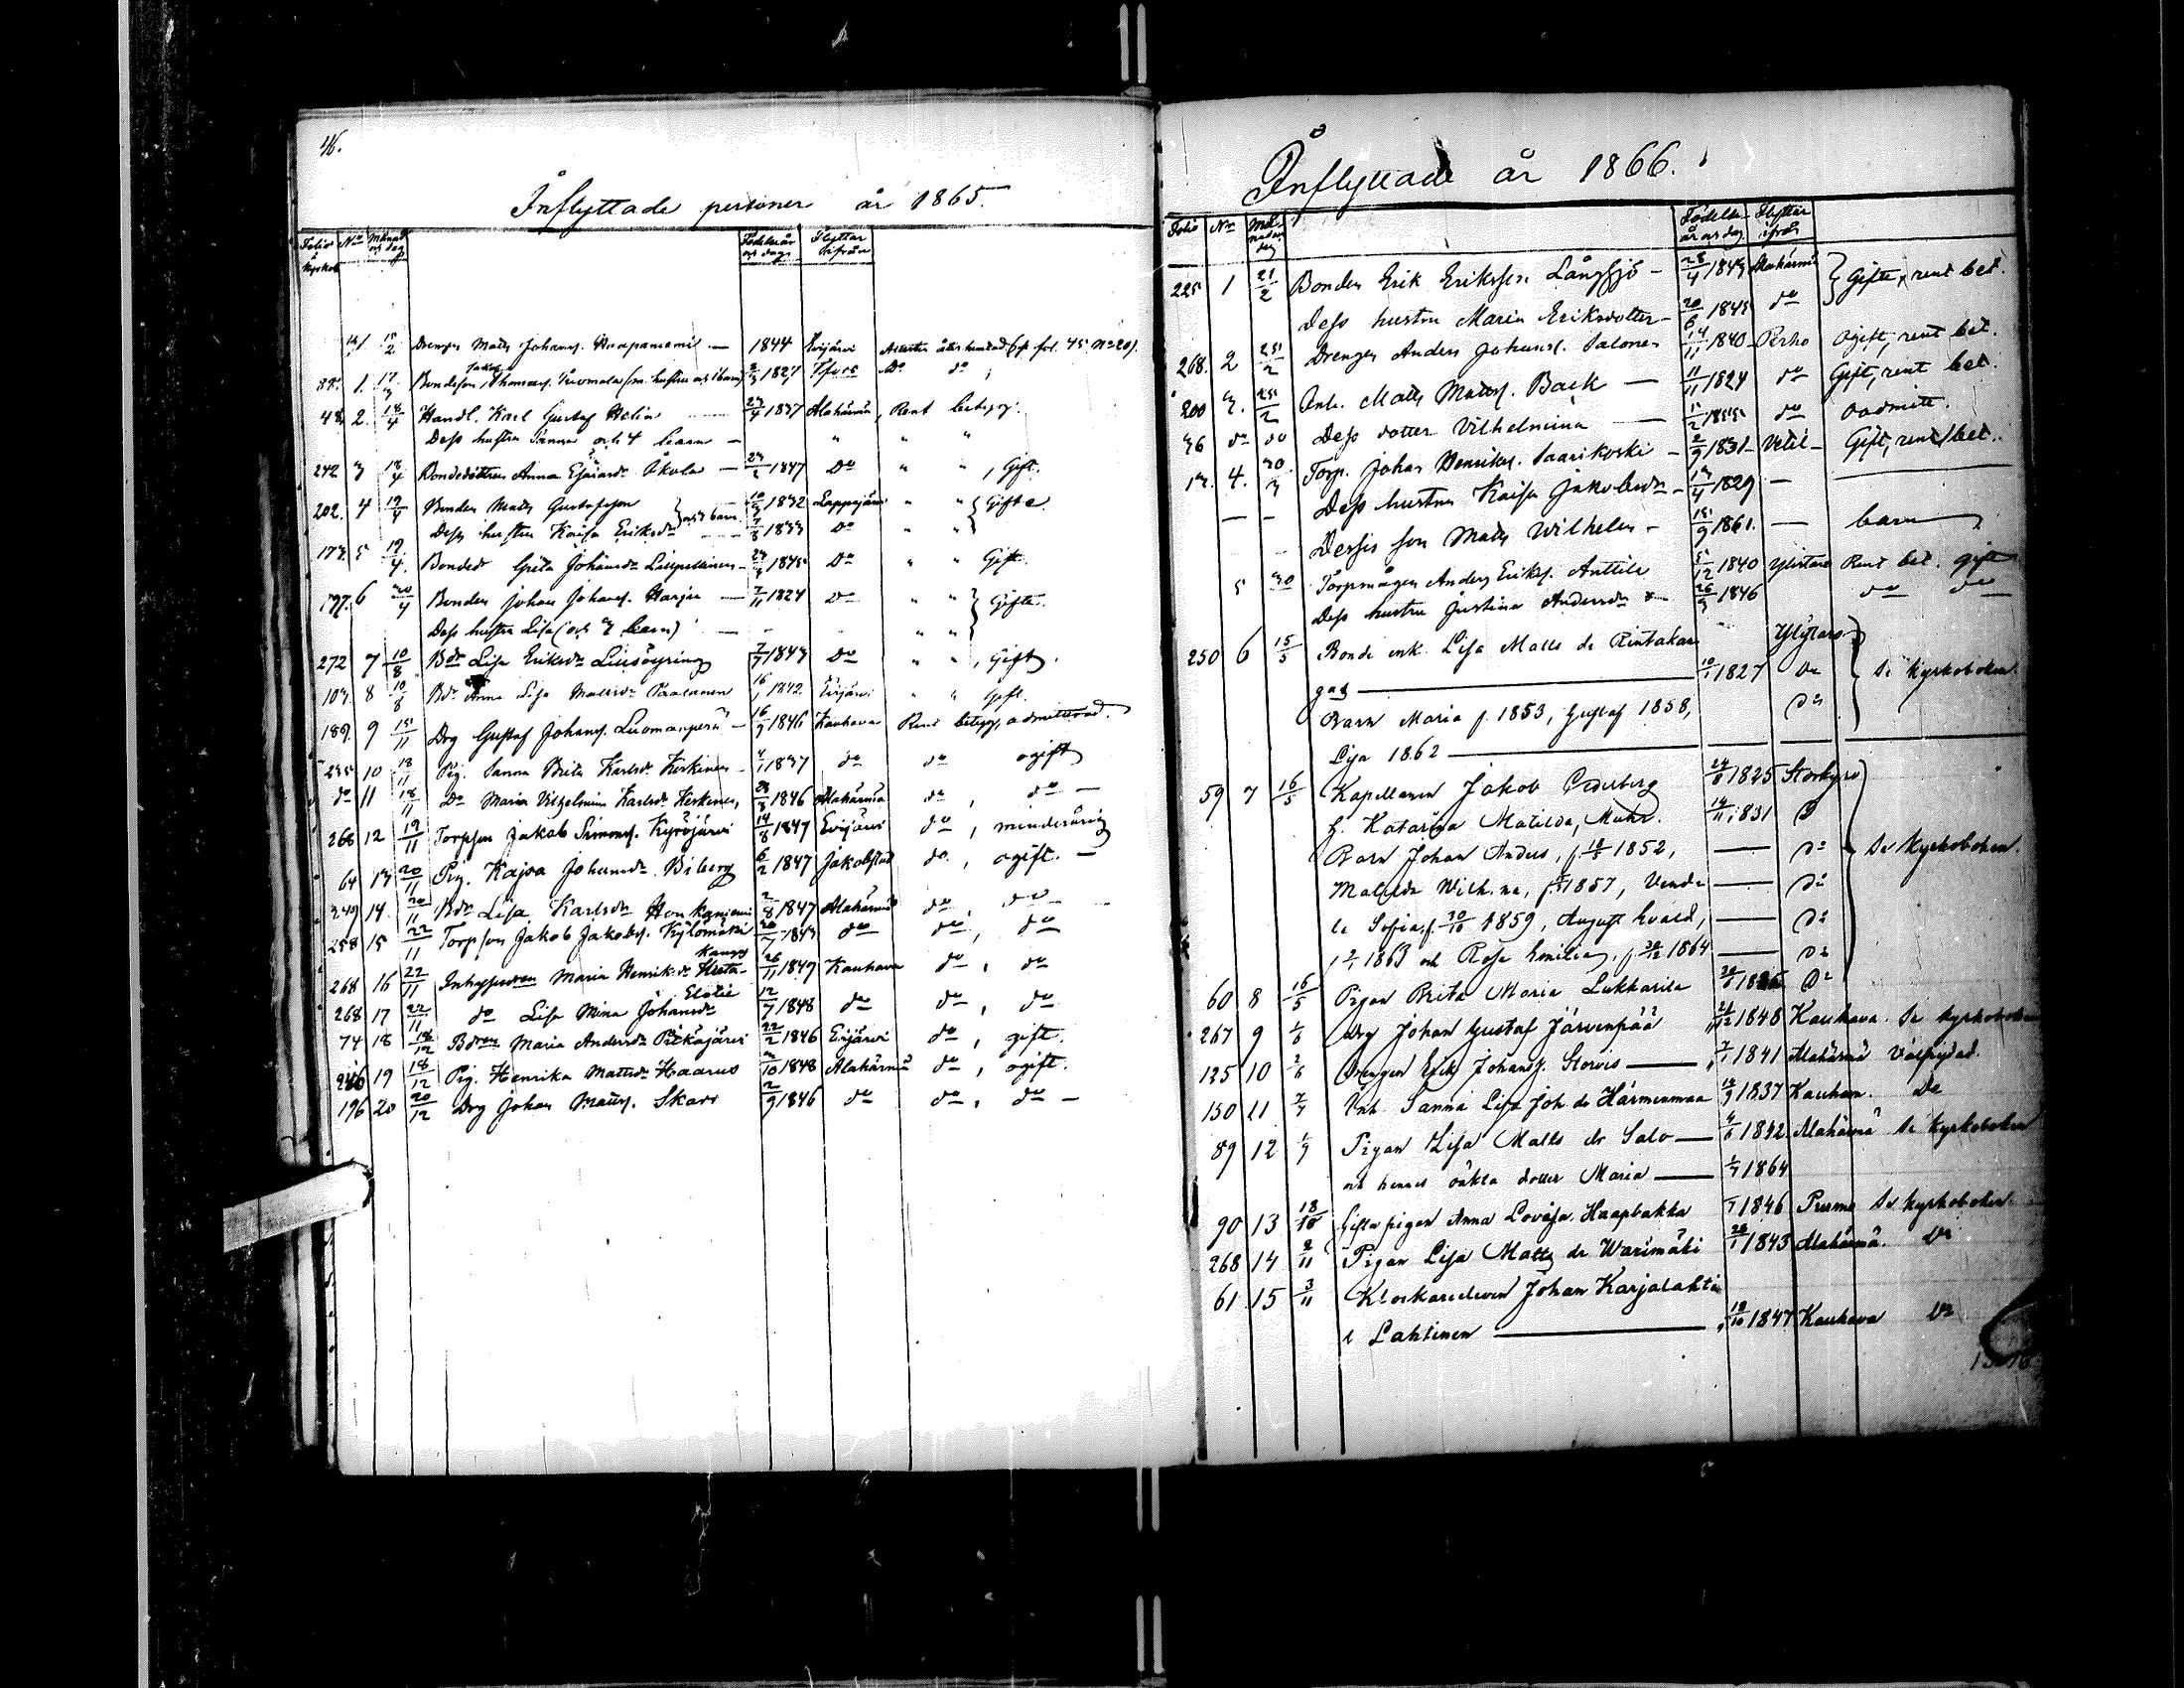 46.
Inflyttade personer år 1865.
Folio i kyrkob. No Månad och dag Födelseår och dag Flyttar ifrån
1 15/2 Drengen Matts Johanss. Haapaniemi — 1844 Evijärvi
Jakob
88. 1. 17/3 Bondeson Thomass. Tuomala (m. hustru och barn) 2/3 1827 do do
48 2. 18/4 Handl. Karl Gustaf Helin 23/4 1837 Alahärmä, Rent betyg.
Dess hustru Sanna och 4 barn — " " "
242 3 18/4 Bondedottren Anna Esaiasdr Åkola — 23/2 1847 Do " " , Gift.
202. 4 19/4 Bonden Matts Gustafsson } och barn. 10/3 1832 Lappajärvi " " } Gifte
Dess hustru Kaisa Eriksdr 7/8 1833 Do " "
173. 5 19/4. Bonded Greta Johansdr 23/3 1845 Do " " Gift.
197. 6 20/4 Bonden Johan Johanss. Harju — 7/11 1824 Do " " } Gifte.
Dess hustru Lisa (och 3 barn) — " "
272 7 10/8 Bdr Lisa Eriksdr 7/7 1843 Do " " , Gift.
103. 8 10/8 Bdr Anna Lisa Mattsdr Paalanen 16/1 1842. Evijärvi " " Gift.
189. 9 15/11 Drg Gustaf Johanss. Luomanperä — 16/9 1846 Kauhava Rent betyg, admitterad.
235 10 18/11 Pig. Sanna Brita Karlsdr Keskinen — 4/1 1837 do do ogift
do 11 18/11 Do Maria Vilhelmina Karlsdr Keskinen, 28/8 1846 Alahärmä do , do —
268 12 19/11 Torpson Jakob Simonss. Kyröjärvi 14/8 1847 Evijärvi do , minderårig
64 13 20/11 Pig. Kajsa Johansdr Biberg 6/2 1847 Jakobstad do. , ogift. —
249 14. 20/11 Bdr Lisa Karlsdr Honkaniemi 2/8 1847 Alahärmä do , do
258 15 22/11 Torpson Jakob Jakobss. Kylömäki 20/7 1843 do do , do
Kangs
268 16 22/11 Inhyses Maria Henriksdr 26/11 1849 Kauhava do , do
268 17 22/11 do Lisa Mina Johansdr 12/7 1848 do do , do
74 18 18/12 Bdren Maria Andersdr Pitkäjärvi 22/2 1846 Evijärvi do , gift.
246 19 18/12 Pig. Henrika Mattsdr Haarus 2/10 1848 Alahärmä do , ogift.
196 20 20/12 Drg Johan Mattss. Skarr 2/9 1846 do do , do —
Inflyttade år 1866.
Folio No Månad och dag Födelse- år och dag Flyttar ifrån
225 1 21/2 Bonden Erik Eriksson Långsjö — 28/4 1843 Alahärmä } Gifte, rent bet.
Dess hustru Maria Eriksdotter — 20/6 1845 do
268. 2 25/2 Drengen Anders Johanss. Salonen 14/11 1840 Perho Ogift, rent bet.
200 3. 25/2 Inh. Matts Mattss. Back — 11/11 1824 do Gift, rent bet.
36 do do Dess dotter Vilhelmina — 5/2 1855 do oadmitt.
13. 4. 30/3 Torp. Johan Henrikss. Saarikoski — 2/9 1831 Vetil — Gift, rent bet.
— — Dess hustru Kaisa Jakobsdr — 13/4 1829 — —
Desses son Matts Wilhelm — 15/9 1861. — barn
5 30 Torpmågen Anders Erikss. Anttila 5/12 1840 Ylistaro Rent bet. gift
Dess hustru Justina Andersdr 26/3 1846 do do
250 6 15/5 Bonde enk. Lisa Matts dr Rintakan- Ylistaro
gas — 10/1 1827 Do } Se Kyrkoboken.
Barn Maria f. 1853, Gustaf 1858, Do
Lisa 1862 —
59 7 16/5 Kapellanen Jakob Cederberg 24/8 1825 Storkyro
h. Katarina Matilda, Muhr. 14/11 1831 D
Barn Johan Anders, f. 18/5 1852, — Do } Se Kyrkoboken.
Matilda Wilh.na, f. 1857, Wende- — Do
la Sofia, f. 30/10 1859, August Evald, — Do
f 2/1 1863 och Rosa Emilia, f. 30/12 1864 — Do
60 8 16/5 Pigan Brita Maria Lukkarila Do
267 9 1/6 Drg Johan Gustaf Järvenpää 24/12 1848 Kauhava Se kyrkoboken
125 10 2/6 Drengen Erik Johanss. Storvis — 7/1 1841 Alahärmä Välfrejdad.
150 11 7/7 Inh. Sanna Lisa Joh. dr Härmenmaa 12/9 1837 Kauhava. Do
89 12 1/9 Pigan Lisa Matts dr Salo — 4/6 1842 Alahärmä Se kyrkoboken
och hennes oäkta dotter Maria — 1/7 1864
90 13 13/10 Gifta pigan Anna Lovisa Haapbakka 1846 Purmo Se kyrkoboken
268 14 2/11 Pigan Lisa Matts dr Warismäki 28/1 1843 Alahärmä. Do
61 15 3/11 Klockareeleven Johan Karjalahti
l. Lahtinen — 18/10 1847 Kauhava Do